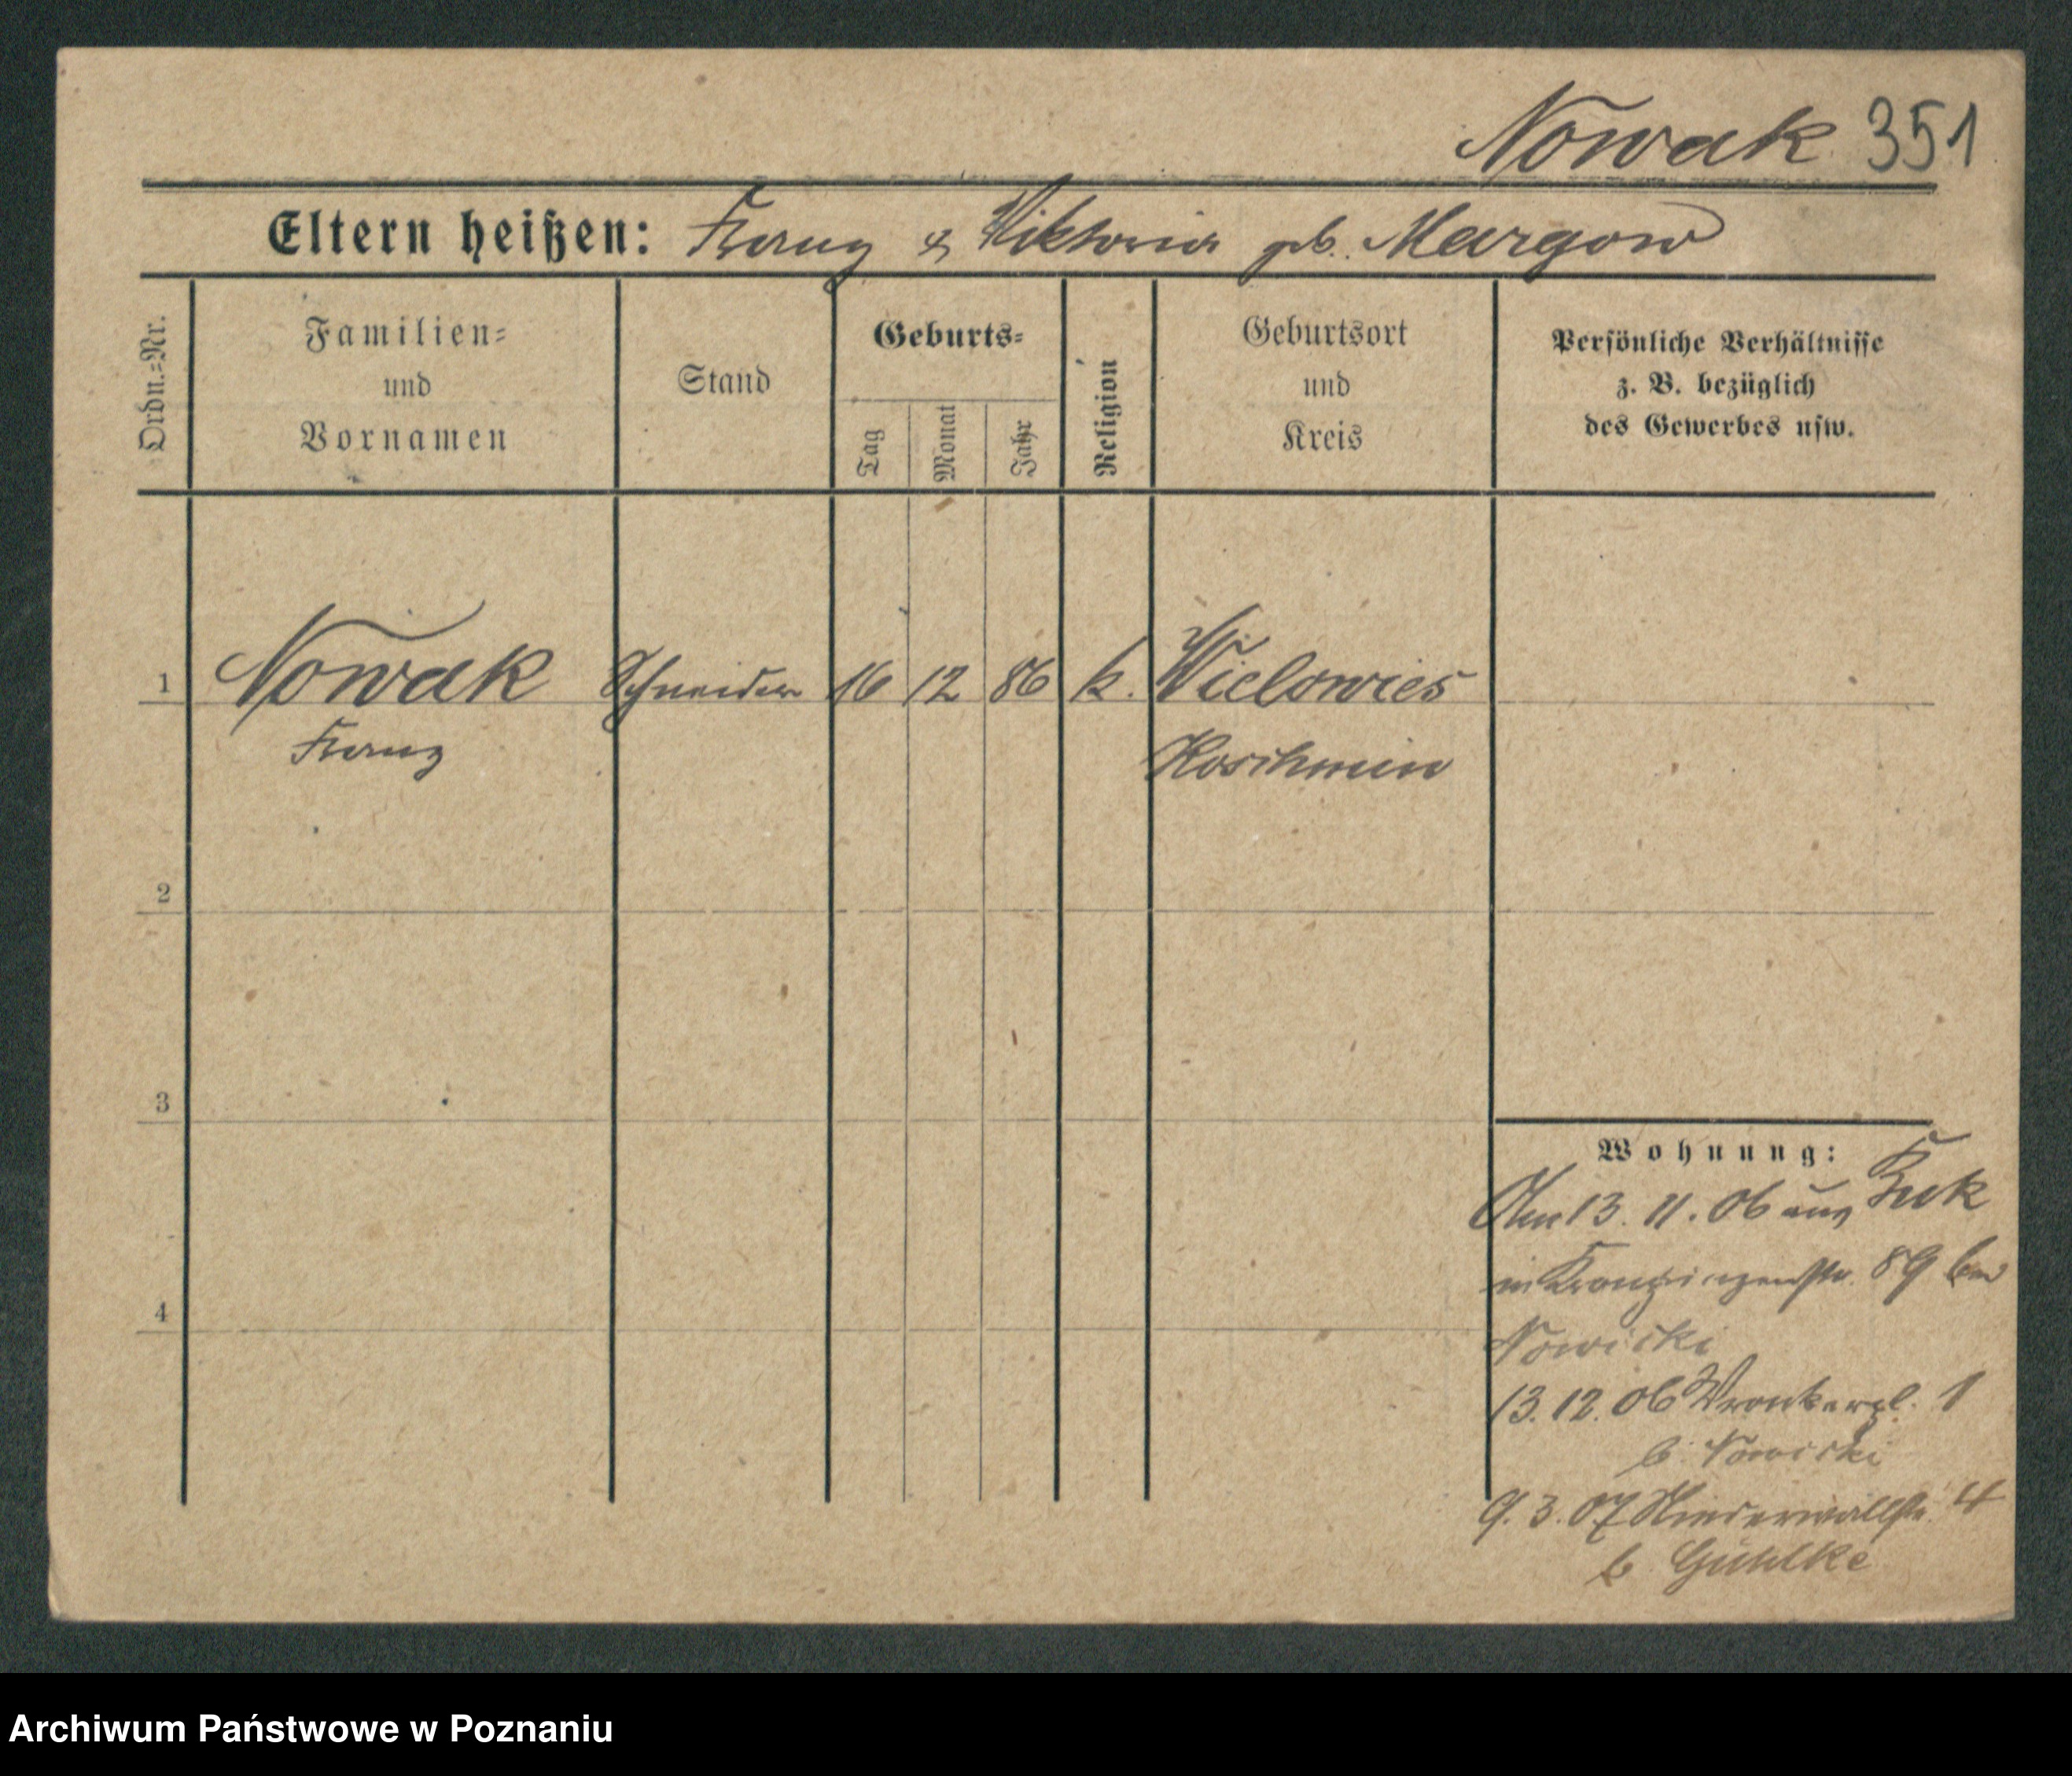 Nowak 351
Eltern heißen: Franz & Viktoria geb. Margow
Ordn.=Nr.
Familien=
und
Vornamen
Stand
Geburts=
Tag
Monat
Jahr
Religion
Geburtsort
und
Kreis
Persönliche Verhältnisse
z. B. bezüglich
des Gewerbes usw.
1 Nowak Schneider 16 12 86 k. Wielowies
Franz Koschmin
2
3
4
Wohnung:
Am 13. 11. 06 aus Buk
in Kronprinzenstr. 89 bei
Nowicki
13. 12. 06 Wronkerpl. 1
b. Nowicki
9. 3. 07 Niederwallstr. 4
b. Gühlke
Archiwum Państwowe w Poznaniu